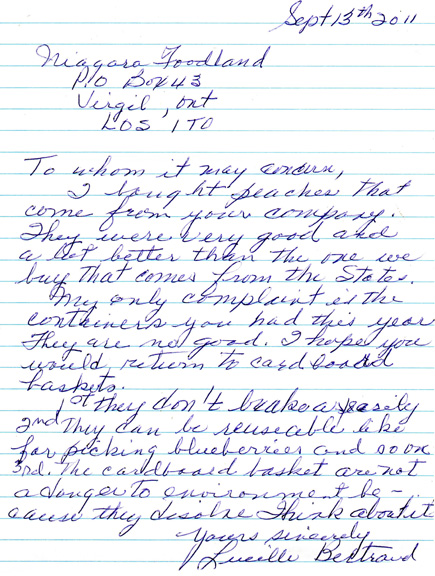 Sept 13th 2011
Niagara Foodland
P.O Box 43
Virgil, Ont
L0S 1T0
To whom it may concern,
I bought peaches that
come from your company.
They were very good and
a lot better than the one we
buy that comes from the States.
My only complaint is the
containers you had this year
They are no good. I hope you
would return to cardboard
baskets.
1st they don't break easily
2nd They can be reuseable like
for picking blueberries and so on
3rd. The cardboard basket are not
a danger to environment be-
cause they disolve Think about it
Yours sincerely
Lucille Bertrand